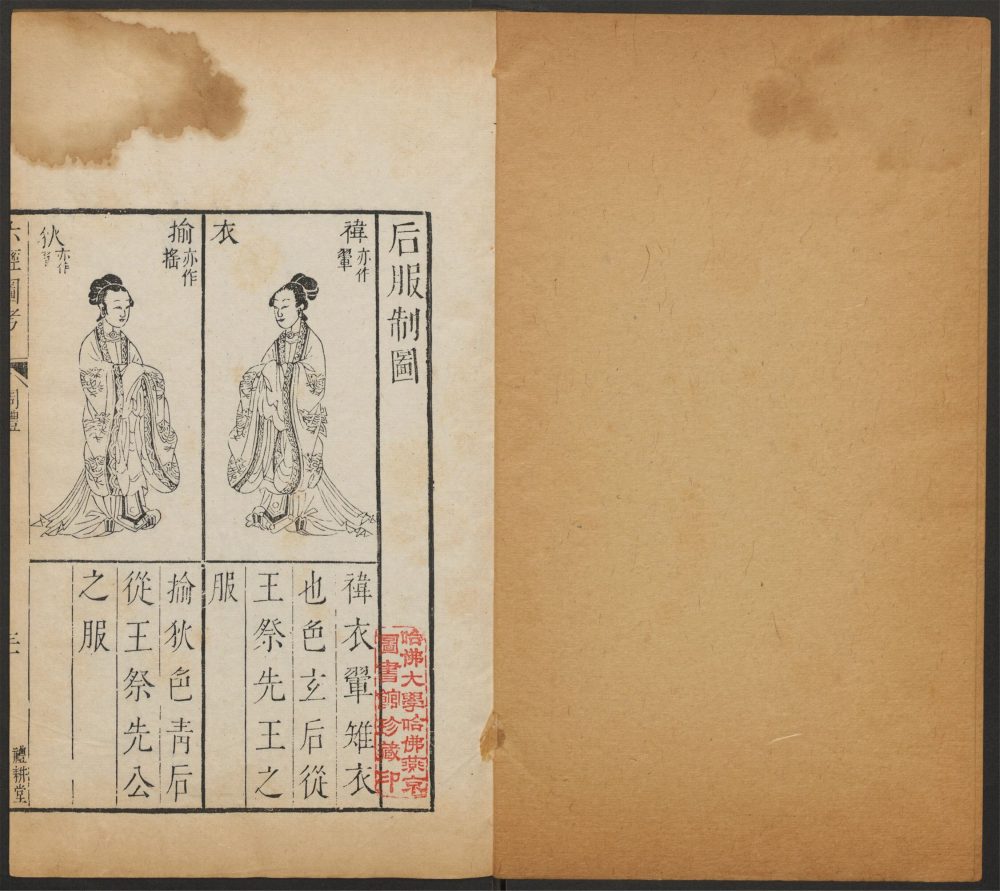 后服制圖
禕亦作翬
衣
禕衣翬雉衣
也色玄后從
王祭先王之
服
揄亦作搖
狄亦作
揄狄色青后
從王祭先公
之服
六經圖考
周禮
三
禮耕堂
哈佛大學哈佛燕京
圖書館珍藏印